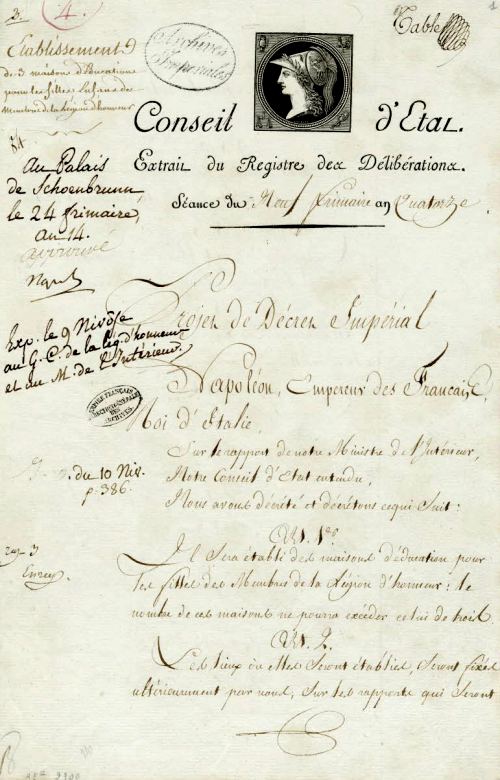 3.
4.
Table
1
Établissement
de 3 maisons d'Éducation
pour les filles
Membres de la Légion d'honneur
Archives
Impériales
Conseil d'Etat.
Extrait du Registre des Délibérations.
Séance du Neuf frimaire an Quatorze
au Palais
de Schoenbrunn
le 24 frimaire,
an 14.
approuvé
Nap
Exp. le 9 Nivôse
au G. C. de la lég. d'honneur
et au M. de l'Intérieur.
EMPIRE FRANÇAIS
DIRECTION GÉNÉRALE
DES
ARCHIVES
du 10 Niv.
p. 386.
Projet de Décret Impérial
Napoléon, Empereur des Français,
Roi d'Italie,
Sur le rapport de notre Ministre de l'Intérieur,
Notre Conseil d'Etat entendu,
Nous avons décrété et décrétons ce qui suit:
Art. 1er.
Il sera établi des maisons d'éducation pour
les filles des Membres de la Légion d'honneur: le
nombre de ces maisons ne pourra excéder celui de trois.
Art. 2.
Les lieux où elles seront établies, seront fixés
ultérieurement par nous, sur les rapports qui seront